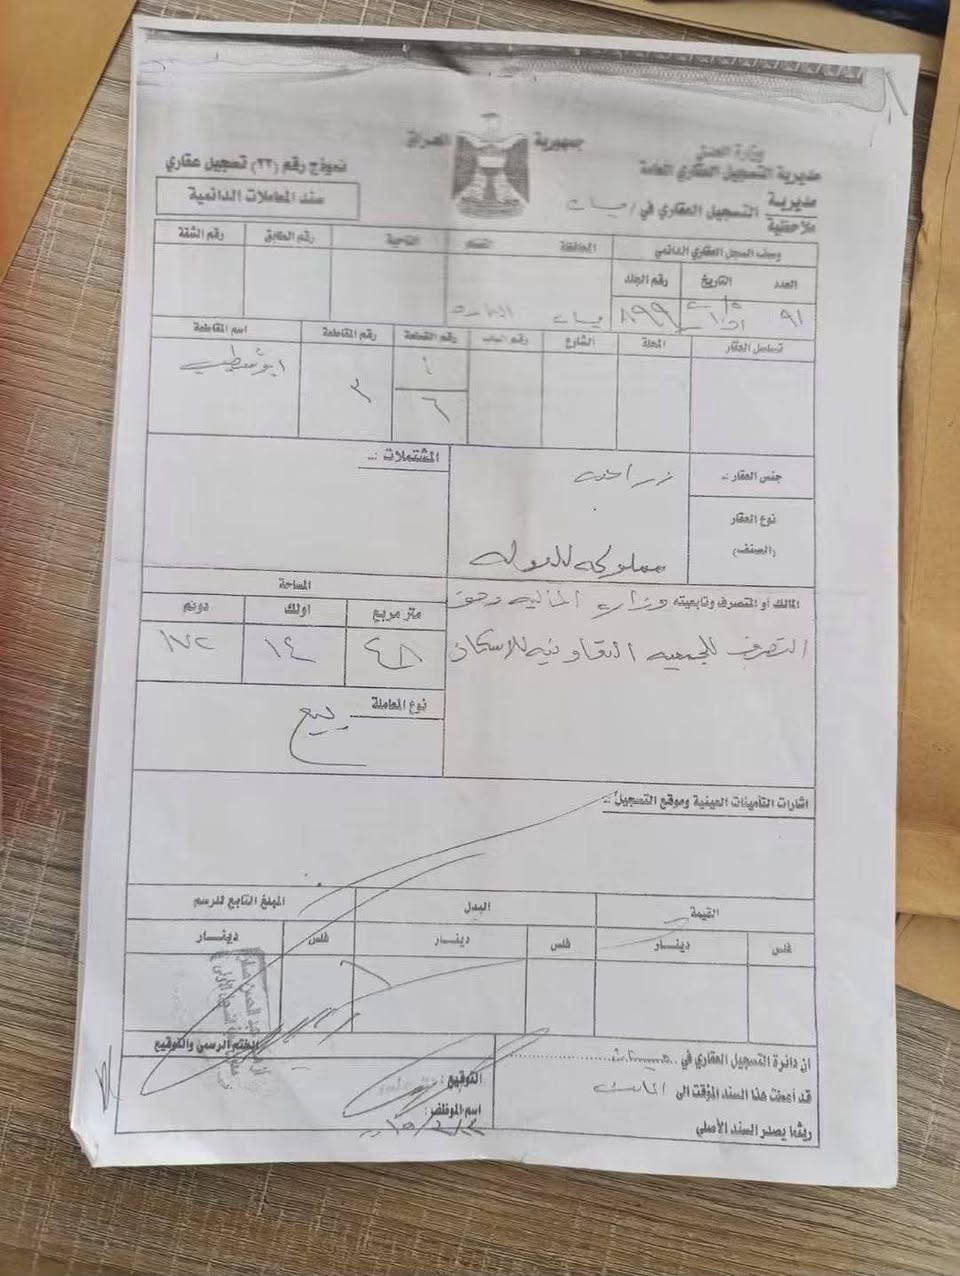 جمهورية العراق
وزارة العدل
مديرية التسجيل العقاري العامة
مديرية
ملاحظية
التسجيل العقاري في / ميسان
نموذج رقم (٣٣) تسجيل عقاري
سند المعاملات الدائمية
وصف السجل العقاري الدائمي
العدد التاريخ رقم الجلد
المحافظة القضاء الناحية رقم الطابق رقم الشقة
٩١ ٨٩٩ ميسان العمارة
تسلسل العقار المحلة الشارع رقم الباب رقم القطعة رقم المقاطعة اسم المقاطعة
١
٦
٣
ابو شطيب
جنس العقار :-
زراعية
المشتملات :-
نوع العقار
(الصنف)
مملوكة للدولة
المالك أو المتصرف وتابعيته وزارة المالية وحق
التصرف للجمعية التعاونية للاسكان
المساحة
متر مربع اولك دونم
٤٨ ١٤ ١٧٢
نوع المعاملة
بيع
اشارات التأمينات العينية وموقع التسجيل :-
القيمة البدل المبلغ التابع للرسم
فلس دينــار فلس دينــار فلس دينــار
ان دائرة التسجيل العقاري في ميسان
قد أعطت هذا السند المؤقت الى
ريثما يصدر السند الأصلي
التوقيع :
اسم الموظف :
الختم الرسمي والتوقيع